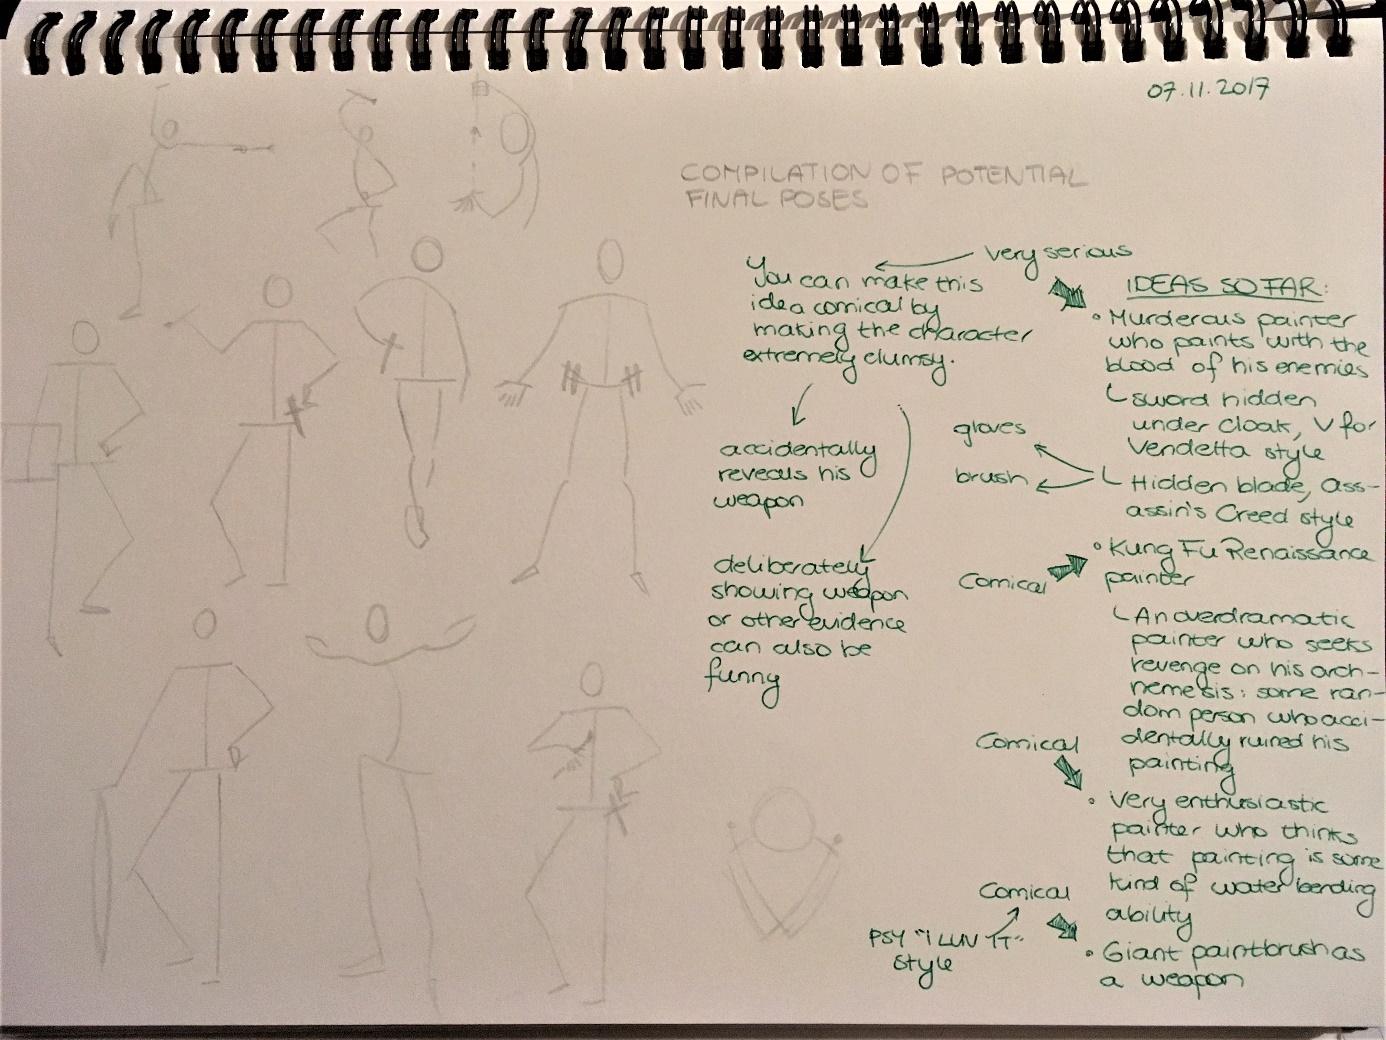 07.11.2017
COMPILATION OF POTENTIAL
FINAL POSES
very serious
You can make this
idea comical by
making the character
extremely clumsy.
accidentally
reveals his
weapon
deliberately
showing weapon
or other evidence
can also be
funny
IDEAS SO FAR:
• Murderous painter
who paints with the
blood of his enemies
sword hidden
under cloak, V for
Vendetta style
gloves
brush
Hidden blade, Ass-
assin's Creed style
Comical
• Kung Fu Renaissance
painter
An overdramatic
painter who seeks
revenge on his arch-
nemesis: some ran-
dom person who acci-
dentally ruined his
painting
Comical
• Very enthusiastic
painter who thinks
that painting is some
kind of water bending
ability
Comical
PSY "I LUV IT"
style
• Giant paintbrush as
a weapon